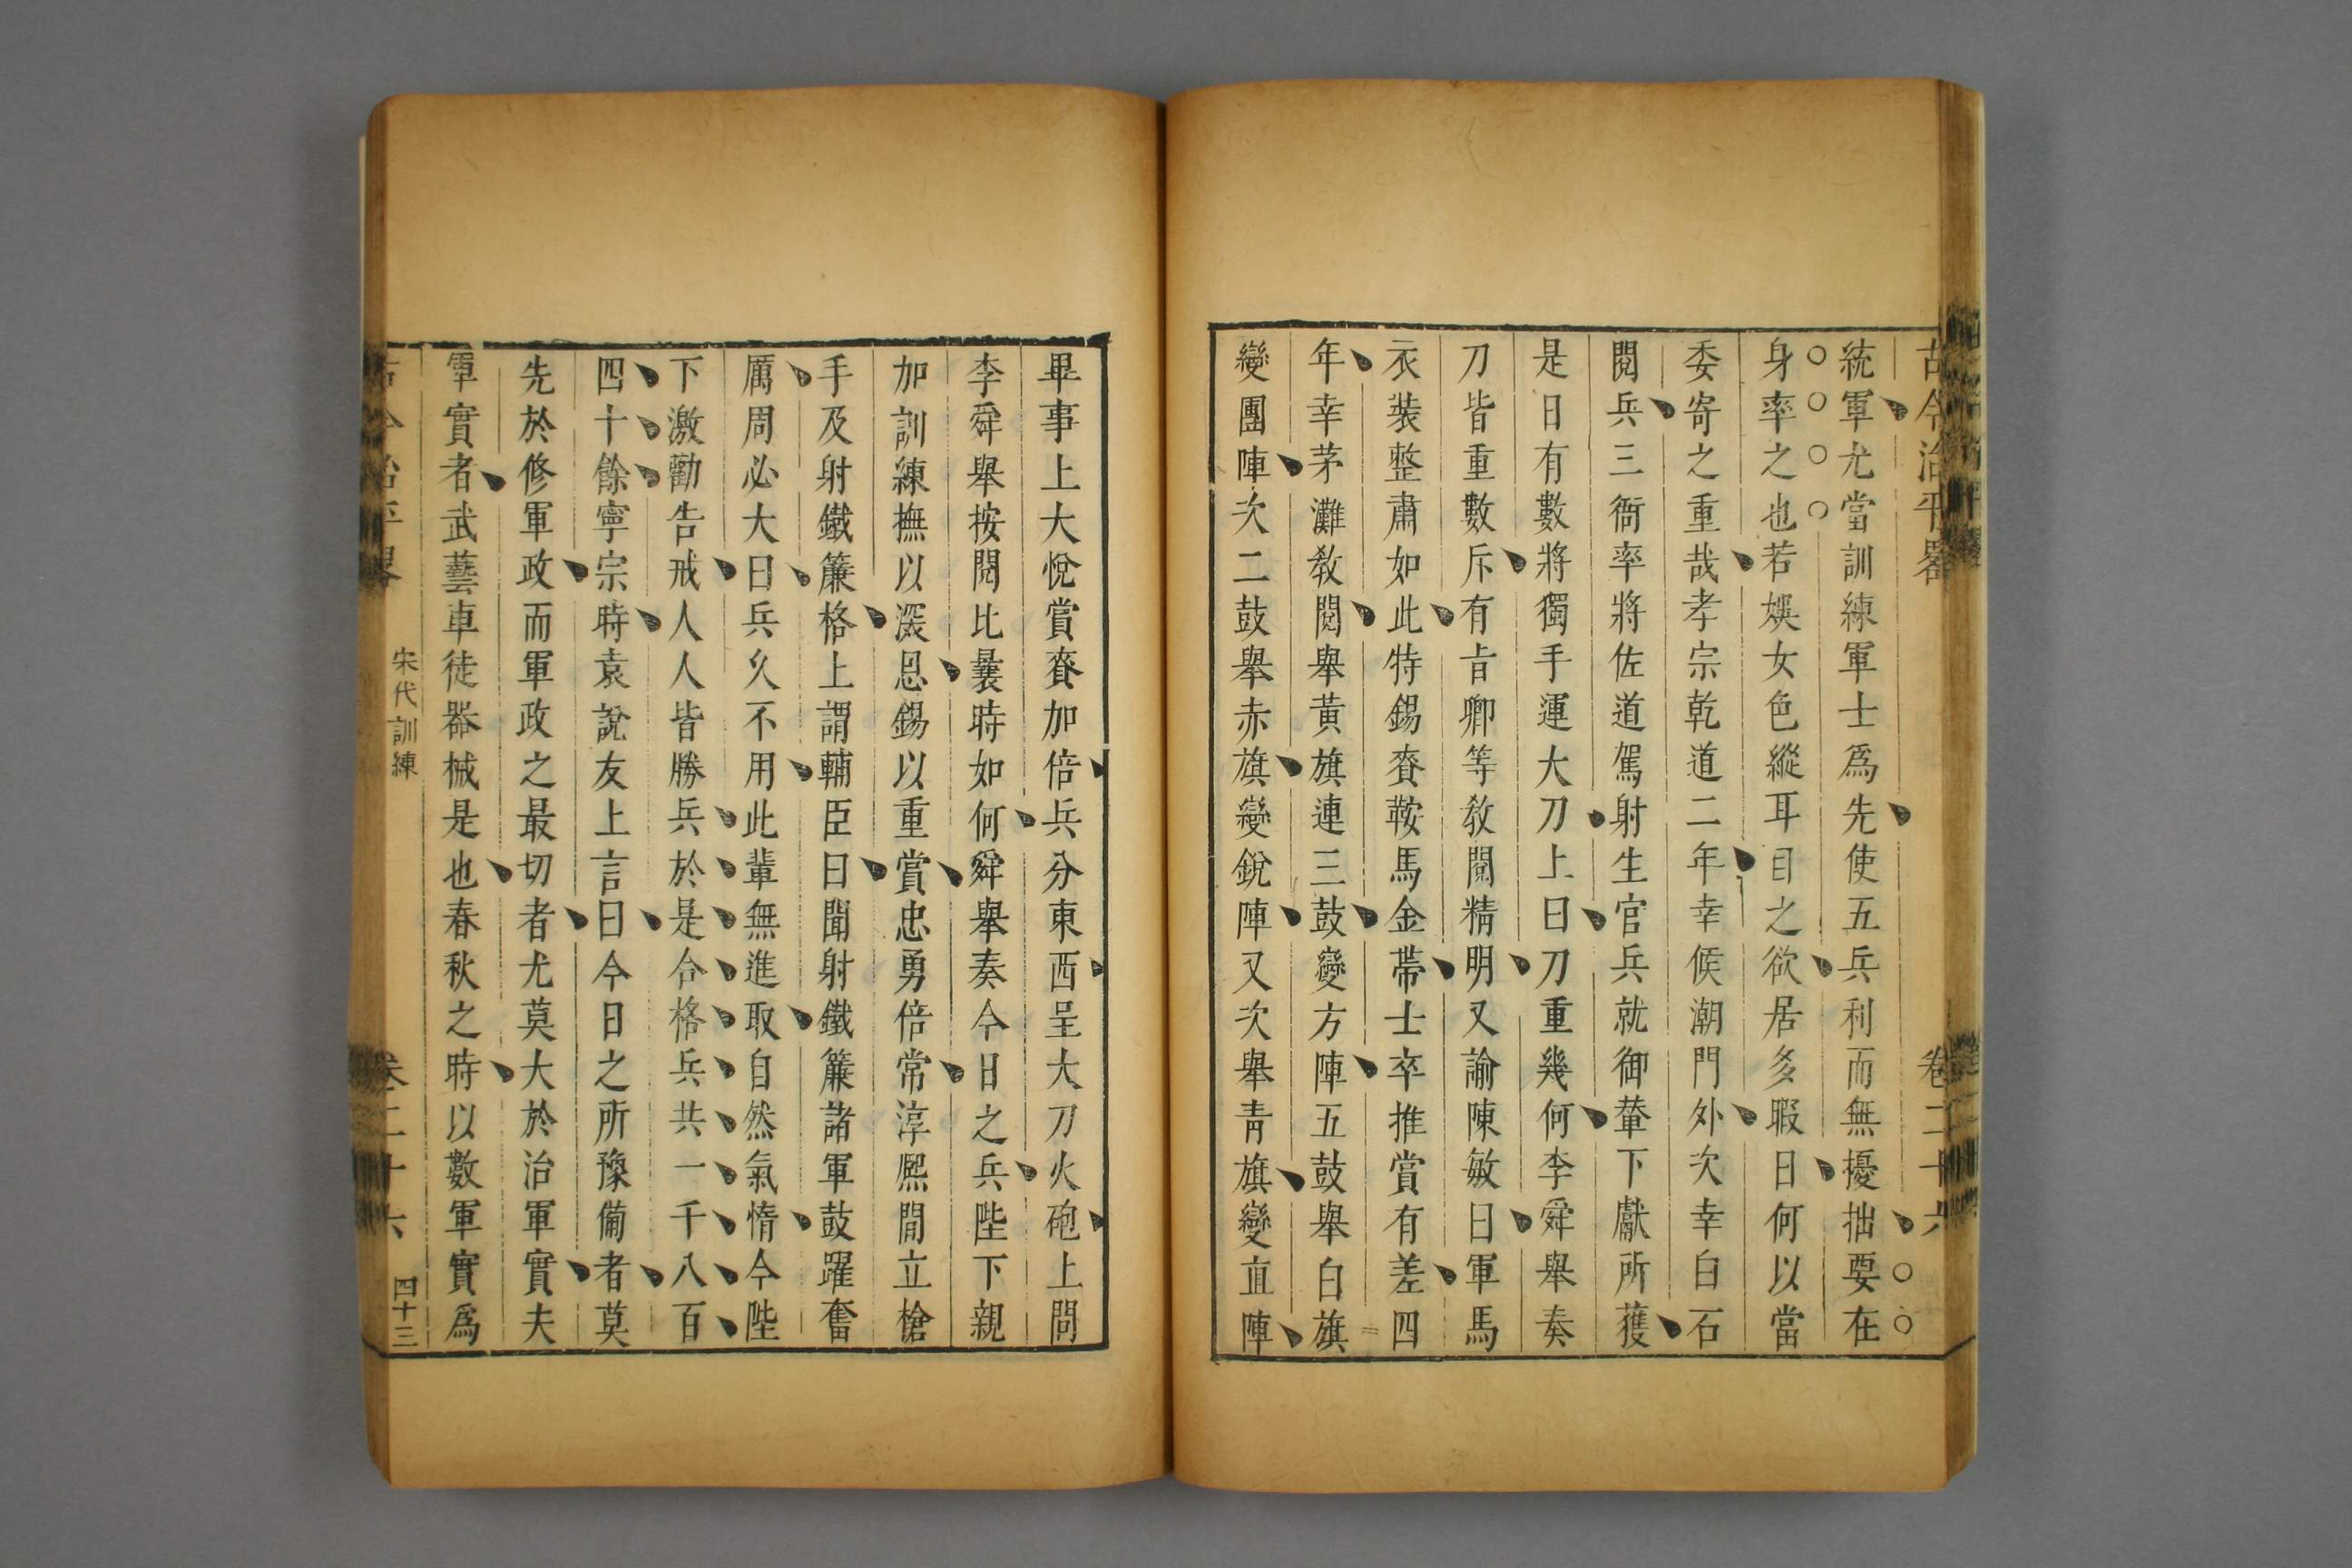 古今治平畧 卷二十六
統軍尤當訓練軍士爲先使五兵利而無擾拙要在
身率之也若娛女色縱耳目之欲居多暇日何以當
委寄之重哉孝宗乾道二年幸候潮門外次幸白石
閱兵三衙率將佐道駕射生官兵就御輦下獻所獲
是日有數將獨手運大刀上曰刀重幾何李舜舉奏
刀皆重數斤有旨卿等敎閱精明又諭陳敏曰軍馬
衣裝整肅如此特錫賚鞍馬金帶士卒推賞有差四
年幸茅灘敎閱舉黃旗連三鼓變方陣五鼓舉白旗
變團陣次二鼓舉赤旗變銳陣又次舉靑旗變直陣
畢事上大悅賞賚加倍兵分東西呈大刀火砲上問
李舜舉按閱比曩時如何舜舉奏今日之兵陛下親
加訓練撫以深恩錫以重賞忠勇倍常淳熙間立槍
手及射鐵簾格上謂輔臣曰聞射鐵簾諸軍鼓躍奮
厲周必大曰兵久不用此輩無進取自然氣惰今陛
下激勸告戒人人皆勝兵於是合格兵共一千八百
四十餘寧宗時袁說友上言曰今日之所豫備者莫
先於修軍政而軍政之最切者尤莫大於治軍實夫
軍實者武藝車徒器械是也春秋之時以數軍實爲
古今治平畧 宋代訓練 卷二十六 四十三